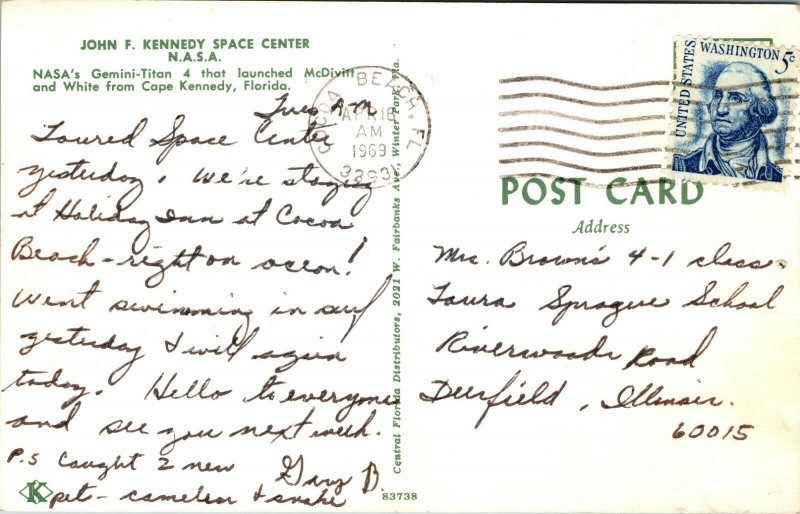 JOHN F. KENNEDY SPACE CENTER
N.A.S.A.
NASA's Gemini-Titan 4 that launched McDivitt
and White from Cape Kennedy, Florida.
Tues AM
Toured Space Center
yesterday. We're staying
at Holiday Inn at Cocoa
Beach - right on ocean!
Went swimming in surf
yesterday & will again
today. Hello to everyone
and see you next week.
P.S Caught 2 new
pets - camelion & snake
Gary B.
K
83738
Central Florida Distributors, 2021 W. Fairbanks Ave., Winter Park, Fla.
COCOA BEACH, FL
APR 16
AM
1969
32931
UNITED STATES
WASHINGTON 5c
POST CARD
Address
Mrs. Brown's 4-1 class
Laura Sprague School
Riverwoods Road
Deerfield, Illinois.
60015